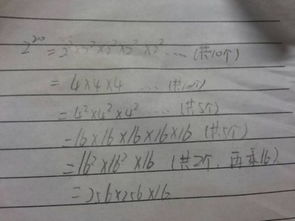 2²⁰ = 2²×2²×2²×2²×2² ··· (共10个)
= 4×4×4 ··· (共10个)
= 4²×4²×4² ··· (共5个)
= 16×16×16×16×16 (共5个)
= 16²×16²×16 (共2个,再乘16)
= 256×256×16